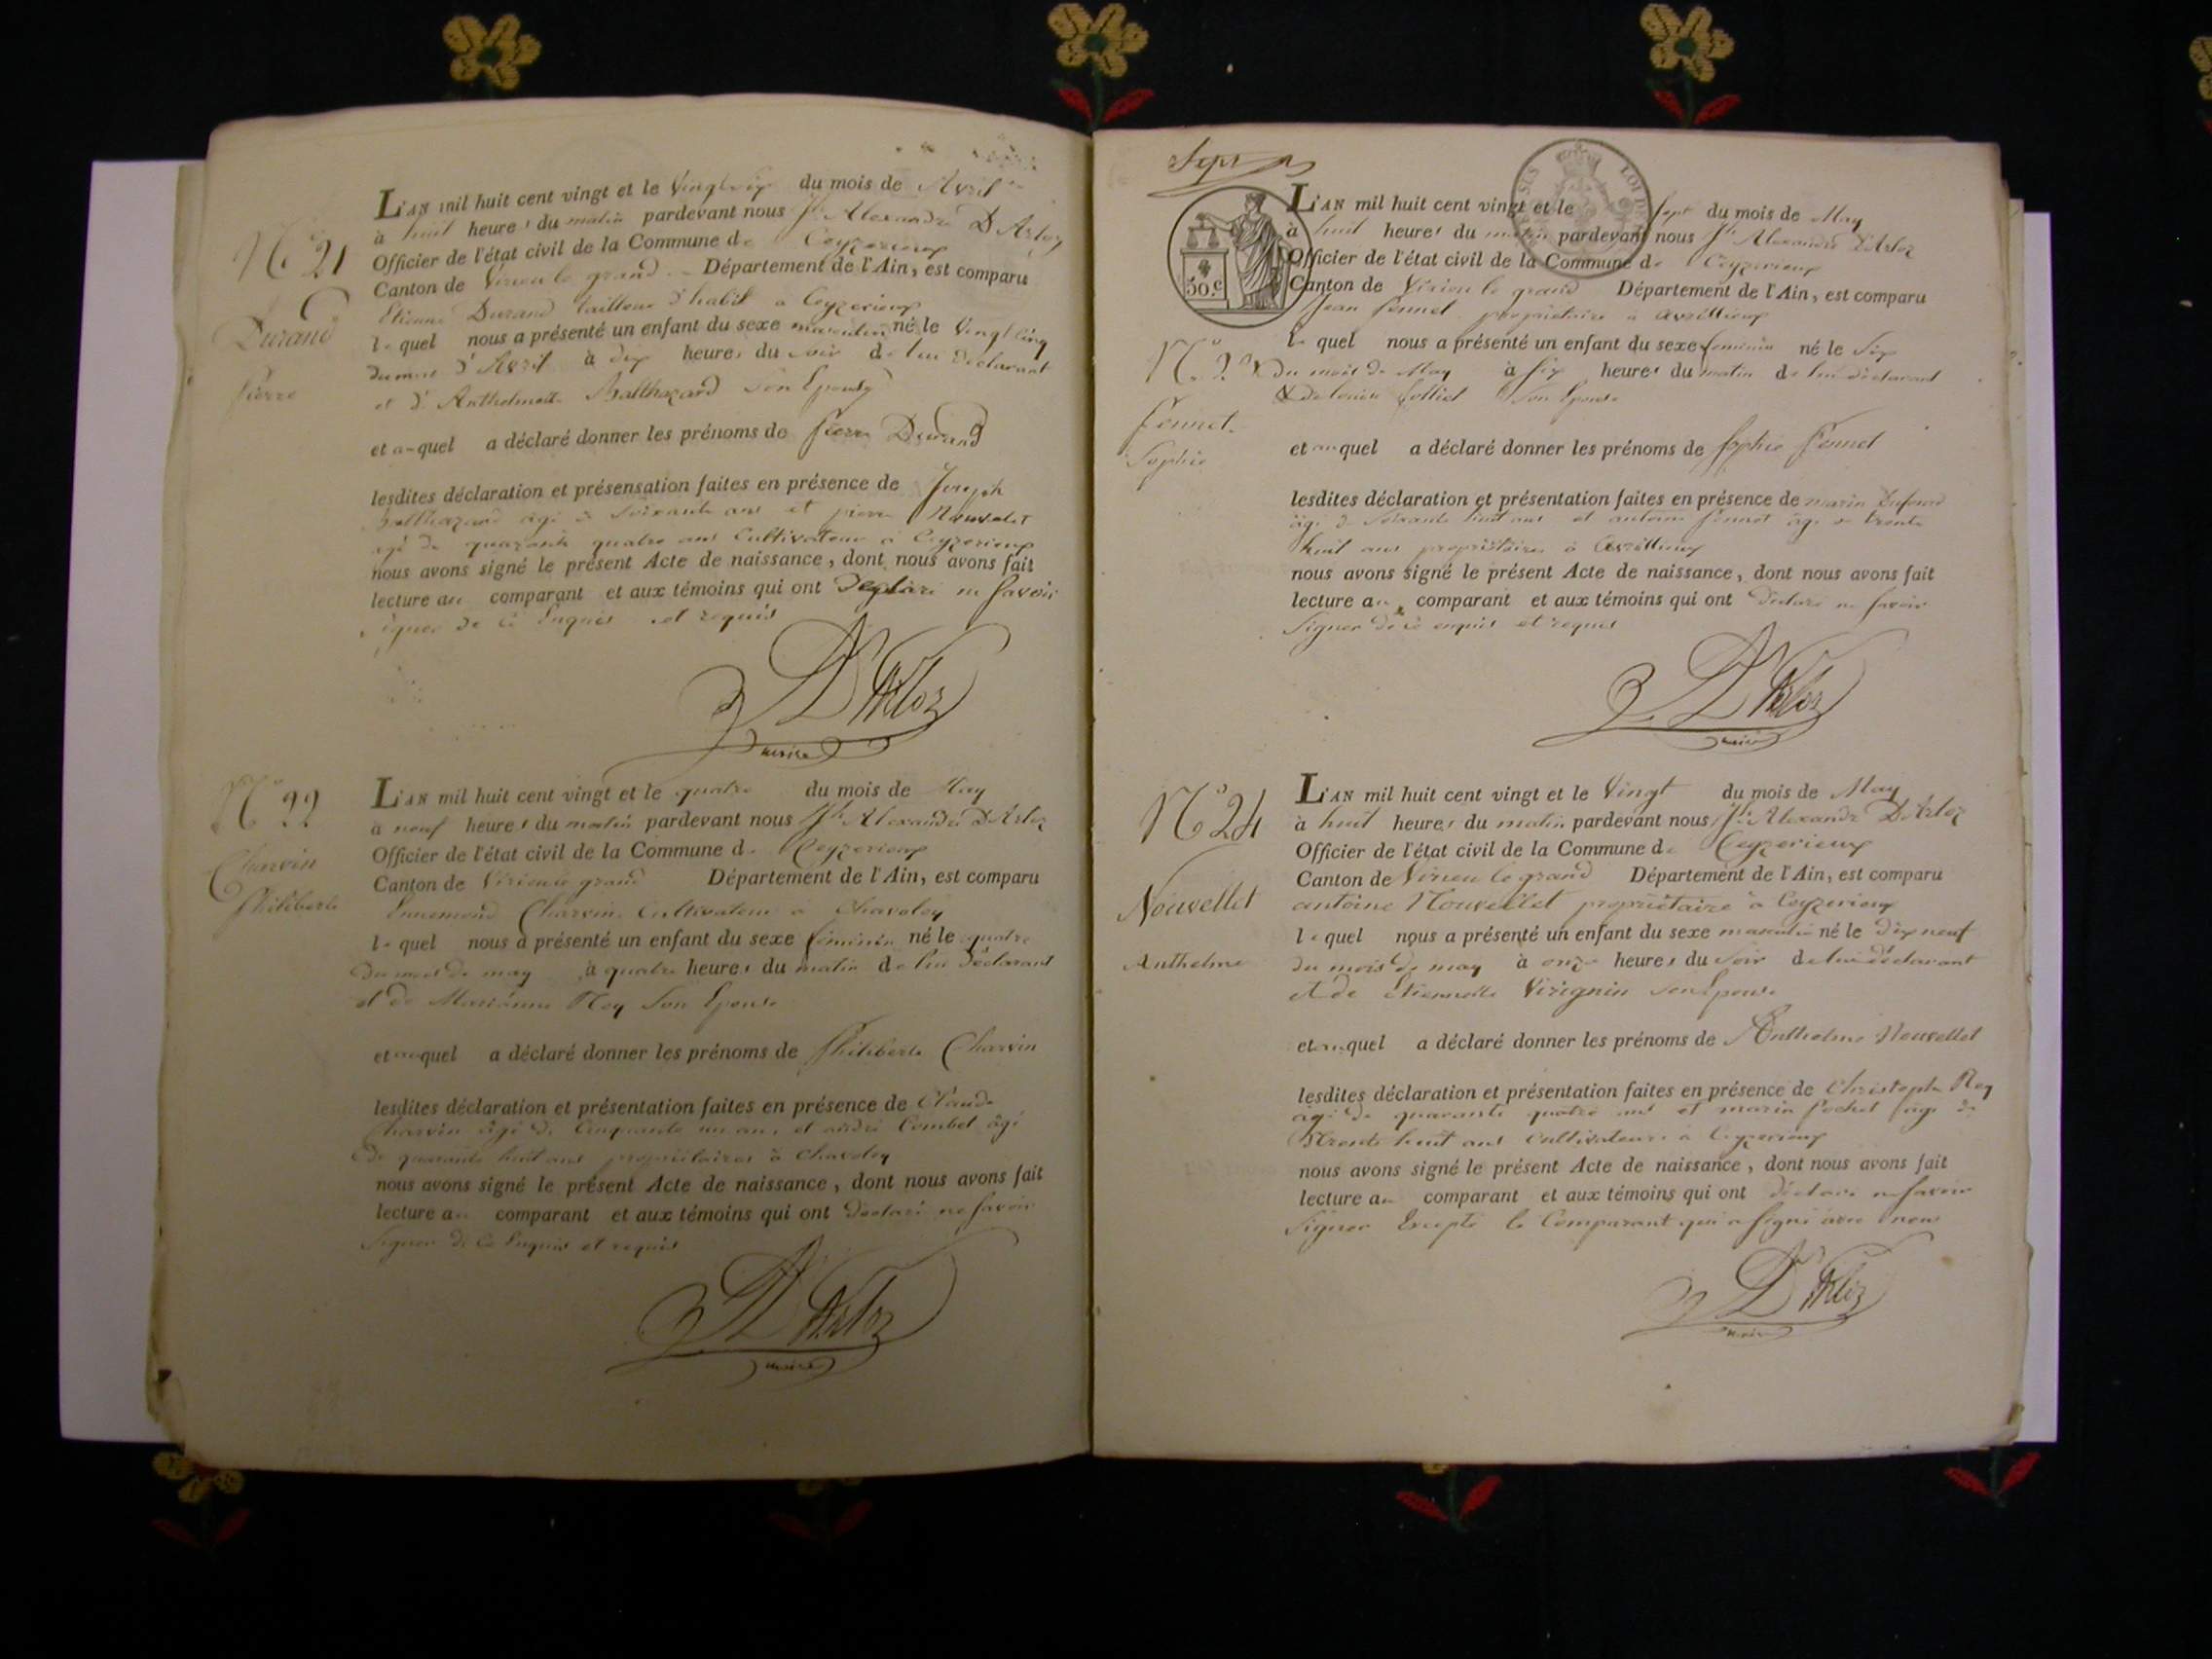 N.o 21
Durand
Pierre
L'AN mil huit cent vingt et le Vingt Six du mois de Avril
à huit heures du matin pardevant nous Jh Alexandre D'Arloz
Officier de l'état civil de la Commune de Ceyzerieux
Canton de Virieu le grand Département de l'Ain, est comparu
Etienne Durand tailleur d'habit a Ceyzerieux
lequel nous a présenté un enfant du sexe masculin né le Vingt Cinq
du mois d'Avril à dix heures du soir de lui déclarant
et d'Anthelmette Balthazard son Epouse
et auquel a déclaré donner les prénoms de Pierre Durand
lesdites déclaration et présensation faites en présence de Joseph
Balthazard agé de Soixante ans et pierre Nouvelet
agé de quarante quatre ans Cultivateurs a Ceyzerieux
nous avons signé le présent Acte de naissance, dont nous avons fait
lecture au comparant et aux témoins qui ont Déclaré ne Savoir
signer de ce Enquis et requis
D'Arloz
maire
N.o 22
Charvin
Philiberte
L'AN mil huit cent vingt et le quatre du mois de May
à neuf heures du matin pardevant nous Jh Alexandre D'Arloz
Officier de l'état civil de la Commune de Ceyzerieux
Canton de Virieu le grand Département de l'Ain, est comparu
Ennemond Charvin Cultivateur a Chavoley
lequel nous a présenté un enfant du sexe féminin né le quatre
du mois de may à quatre heures du matin de lui déclarant
et de Marianne Rey Son Epouse
et auquel a déclaré donner les prénoms de Philiberte Charvin
lesdites déclaration et présentation faites en présence de Claude
Charvin âgé de Cinquante un ans et andré Combet âgé
de quarante huit ans propriétaires à Chavoley
nous avons signé le présent Acte de naissance, dont nous avons fait
lecture au comparant et aux témoins qui ont déclaré ne Savoir
Signer de Ce Enquis et requis
D'Arloz
maire
Sept
50.c
N.o 23
Pennet
Sophie
L'AN mil huit cent vingt et le Sept du mois de May
à huit heures du matin pardevant nous Jh Alexandre D'Arloz
Officier de l'état civil de la Commune de Ceyzerieux
Canton de Virieu le grand Département de l'Ain, est comparu
Jean Pennet propriétaire à avrillieux
lequel nous a présenté un enfant du sexe feminin né le Six
du mois de May à Six heures du matin de lui déclarant
& de louise Son Epouse
et auquel a déclaré donner les prénoms de Sophie Pennet
lesdites déclaration et présentation faites en présence de marin
âgé de Soixante huit ans et antoine Pennet âgé de trente
huit ans propriétaires à avrillieux
nous avons signé le présent Acte de naissance, dont nous avons fait
lecture au comparant et aux témoins qui ont déclaré ne Savoir
Signer de ce enquis et requis
D'Arloz
maire
N.o 24
Nouvellet
Anthelme
L'AN mil huit cent vingt et le Vingt du mois de May
à huit heures du matin pardevant nous Jh Alexandre D'Arloz
Officier de l'état civil de la Commune de Ceyzerieux
Canton de Virieu le grand Département de l'Ain, est comparu
antoine Nouvellet propriétaire à Ceyzerieux
lequel nous a présenté un enfant du sexe masculin né le dix neuf
du mois de may à onze heures du Soir de lui déclarant
et de Etiennette Virignin son Epouse
et auquel a déclaré donner les prénoms de Anthelme Nouvellet
lesdites déclaration et présentation faites en présence de Christophe Rey
agé de quarante quatre ans et marin Pochet âgé de
trente huit ans Cultivateurs a Ceyzerieux
nous avons signé le présent Acte de naissance, dont nous avons fait
lecture au comparant et aux témoins qui ont déclaré ne Savoir
Signer Excepté le Comparant qui a Signé avec nous
D'Arloz
maire